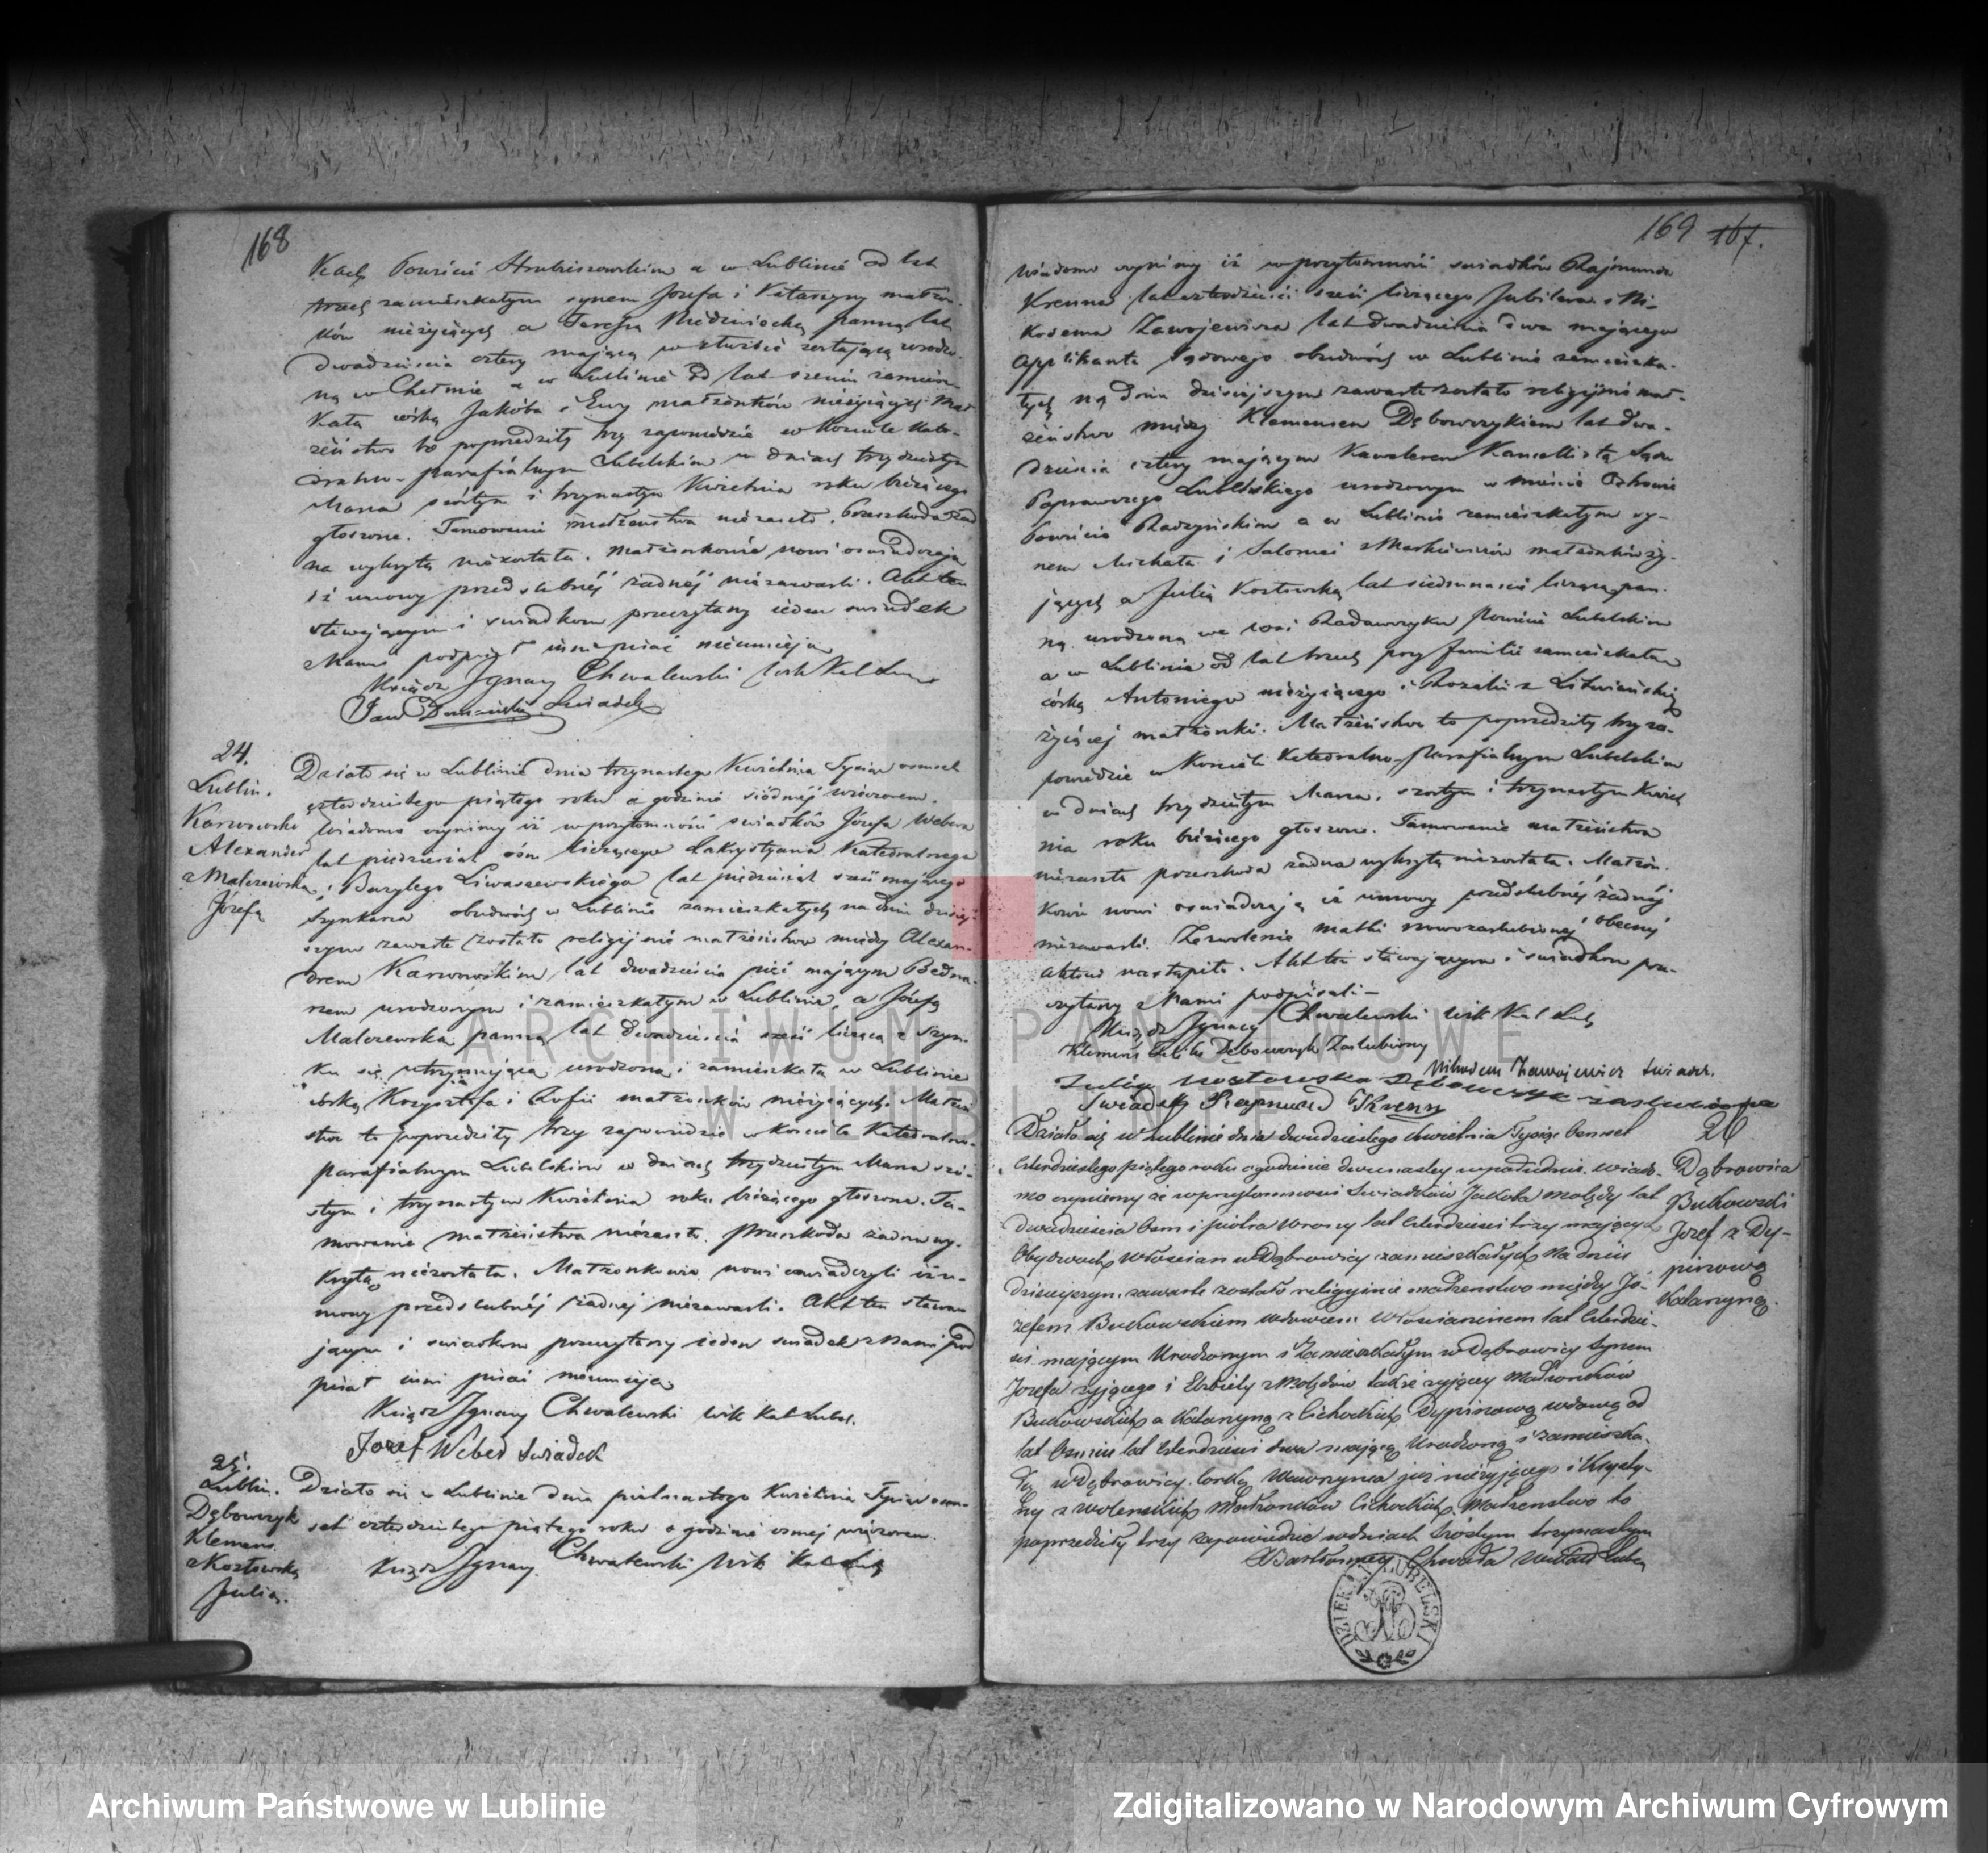 168
Powiecie Hrubieszowskim a w Lublinie od lat
trzech zamieszkałym synem Józefa i Katarzyny małżon-
ków nieżyiących a Teressą Niedzwiecką panną lat
dwadzieścia cztery maiącą w służbie zostaiącą urodzo-
ną w Chełmie a w Lublinie od lat zamiesz-
kałą córką Jakóba i Ewy małżonków nieżyiących. Mał-
żeństwo to poprzedziły trzy zapowiedzie w Kościele Kate-
dralno-parafialnym Lubelskim w dniach trzydziestym
Marca szóstym i trzynastym Kwietnia roku bieżącego
głoszone. Tamowanie małżeństwa niezaszło. Przeszkoda żad
na wykrytą niezostała. Małżonkowie nowi oświadczają
iż umowy przedślubnéj żadnéj niezawarli. Akt ten
stawającym i świadkom przeczytany ieden świadek
z Nami podpisał inni pisać nieumieją
Ksiądz Ignacy Chwalewski Wik Kat Lub
Jan Świadek
24.
Lublin.
Karwowski
Alexander
z Malczewską
Józefą
Działo się w Lublinie dnia trzynastego Kwietnia Tysiąc osmset
czterdziestego piątego roku o godzinie siódméj wieczorem.
Wiadomo czynimy iż w przytomności świadków Józefa Webera
lat piędziesiąt ośm liczącego Zakrystyana Katedralnego
i Bazylego Liwaszewskiego lat piędziesiąt sześć maiącego
Szynkarza obudwóch w Lublinie zamieszkałych na dniu dzisiej-
szym zawarte zostało religijnie małżeństwo między Alexan-
drem Karwowskim lat dwadzieścia pięć mającym Bedna-
rzem urodzonym i zamieszkałym w Lublinie, a Józefą
Malczewską panną lat dwadzieścia sześć liczącą z Szyn-
ku się utrzymującą urodzoną i zamieszkałą w Lublinie
córką Krzysztofa i Zofii małżonków nieżyiących. Małżeń
stwo to poprzedziły trzy zapowiedzie w Kościele Katedralno-
parafialnym Lubelskim w dniach trzydziestym Marca szó-
stym i trzynastym Kwietnia roku bieżącego głoszone. Ta-
mowanie małżeństwa niezaszło. Przeszkoda żadna wy-
krytą niezostała. Małżonkowie nowi oświadczyli iż u-
mowy przedślubnéj żadnéj niezawarli. Akt ten stawa-
jącym i świadkom przeczytany ieden świadek z Nami pod
pisał inni pisać nieumieją
Ksiądz Ignacy Chwalewski Wik Kat Lubel.
Jozef Weber Swiadek
25.
Lublin.
Dębowczyk
Klemens
z Kozłowską
Julią.
Działo się w Lublinie dnia piętnastego Kwietnia Tysiąc osm-
set czterdziestego piątego roku o godzinie osmej wieczorem.
Ksiądz Ignacy Chwalewski Wik Kat Lub
169 167.
Wiadomo czynimy iż w przytomności świadków Rajmunda
Krenna lat czterdzieści sześć liczącego Jubilera i Ni-
kodema Zawojewicza lat dwadzieścia dwa mającego
Applikanta Sądowego obudwóch w Lublinie zamieszka-
łych na dniu dzisiejszym zawarte zostało religijnie mał-
żeństwo między Klemensem Dębowczykiem lat dwa-
dzieścia cztery mającym Kawalerem Kancellistą Sądu
Poprawczego Lubelskiego urodzonym w mieście Ostrowie
Powiecie Radzyńskim a w Lublinie zamieszkałym sy-
nem Michała i Salomei z Markiewiczów małżonków ży-
jących a Julią Kozłowską lat siedmnaście liczącą pan-
ną urodzoną we wsi Radawczyku Powiecie Lubelskim
a w Lublinie od lat trzech przy familii zamieszkałą
córką Antoniego nieżyiącego i Rozalii z Litwińskich
żyiącej małżonki. Małżeństwo to poprzedziły trzy za-
powiedzie w Kościele Katedralno-Parafialnym Lubelskim
w dniach trzydziestym Marca, szóstym i trzynastym Kwiet
nia roku bieżącego głoszone. Tamowanie małżeństwa
niezaszło przeszkoda żadna wykrytą niezostała. Małżon-
kowie nowi oświadczają iż umowy przedślubnéj żadnéj
niezawarli. Zezwolenie matki nowozaślubionéj obecnéj
aktowi nastąpiło. Akt ten stawającym i świadkom prze-
czytany z Nami podpisali –
Ksiądz Ignacy Chwalewski Wik Kat Lub
Klemens Dębowczyk Zaslubiony
Nikodem Zawojewicz Swiadek.
Julia Kozłowska Dębowczyk zaslubiona
Swiadek Rajmund Krenn
26
Dąbrowica
Bukowski
Jozef z Dy-
pinową
Katarzyną.
Działo się w Lublinie dnia dwudziestego Kwietnia Tysiąc Osmset
Czterdziestego piątego roku o godzinie dwunastey w południe. Wiado-
mo czyniemy iż w przytomnosci Swiadków Jakoba Molędy lat
dwadziescia Osm i Piotra Wrony lat Czterdziesci trzy mających
Obydwuch Włoscian w Dąbrowicy zamieszkałych Na dniu
dzisieyszym zawarte zostało religiynie małżenstwo między Jó-
zefem Bukowskiem wdowcem Włoscianinem lat Czterdzie-
sci mającym Urodzonym i Zamieszkałym w Dąbrowicy Synem
Jozefa zyjącego i Elzbiety z Molędów także zyjącey Małzonków
Bukowskich a Katarzyną z Cichockich Dypinową wdową od
lat Osmiu lat Czterdziesci dwa mającą Urodzoną i zamieszka-
łą w Dąbrowicy Corką Wawrzynca już niezyjącego i Krysty-
ny z Wolenskich Małzonków Cichockich. Małżenstwo to
poprzedziły trzy zapowiedzie w dniach Szóstym trzynastym
X Bartłomiey Chwada
DZIEKAN LUBELSKI
ARCHIWUM PAŃSTWOWE
W LUBLINIE
Archiwum Państwowe w Lublinie
Zdigitalizowano w Narodowym Archiwum Cyfrowym